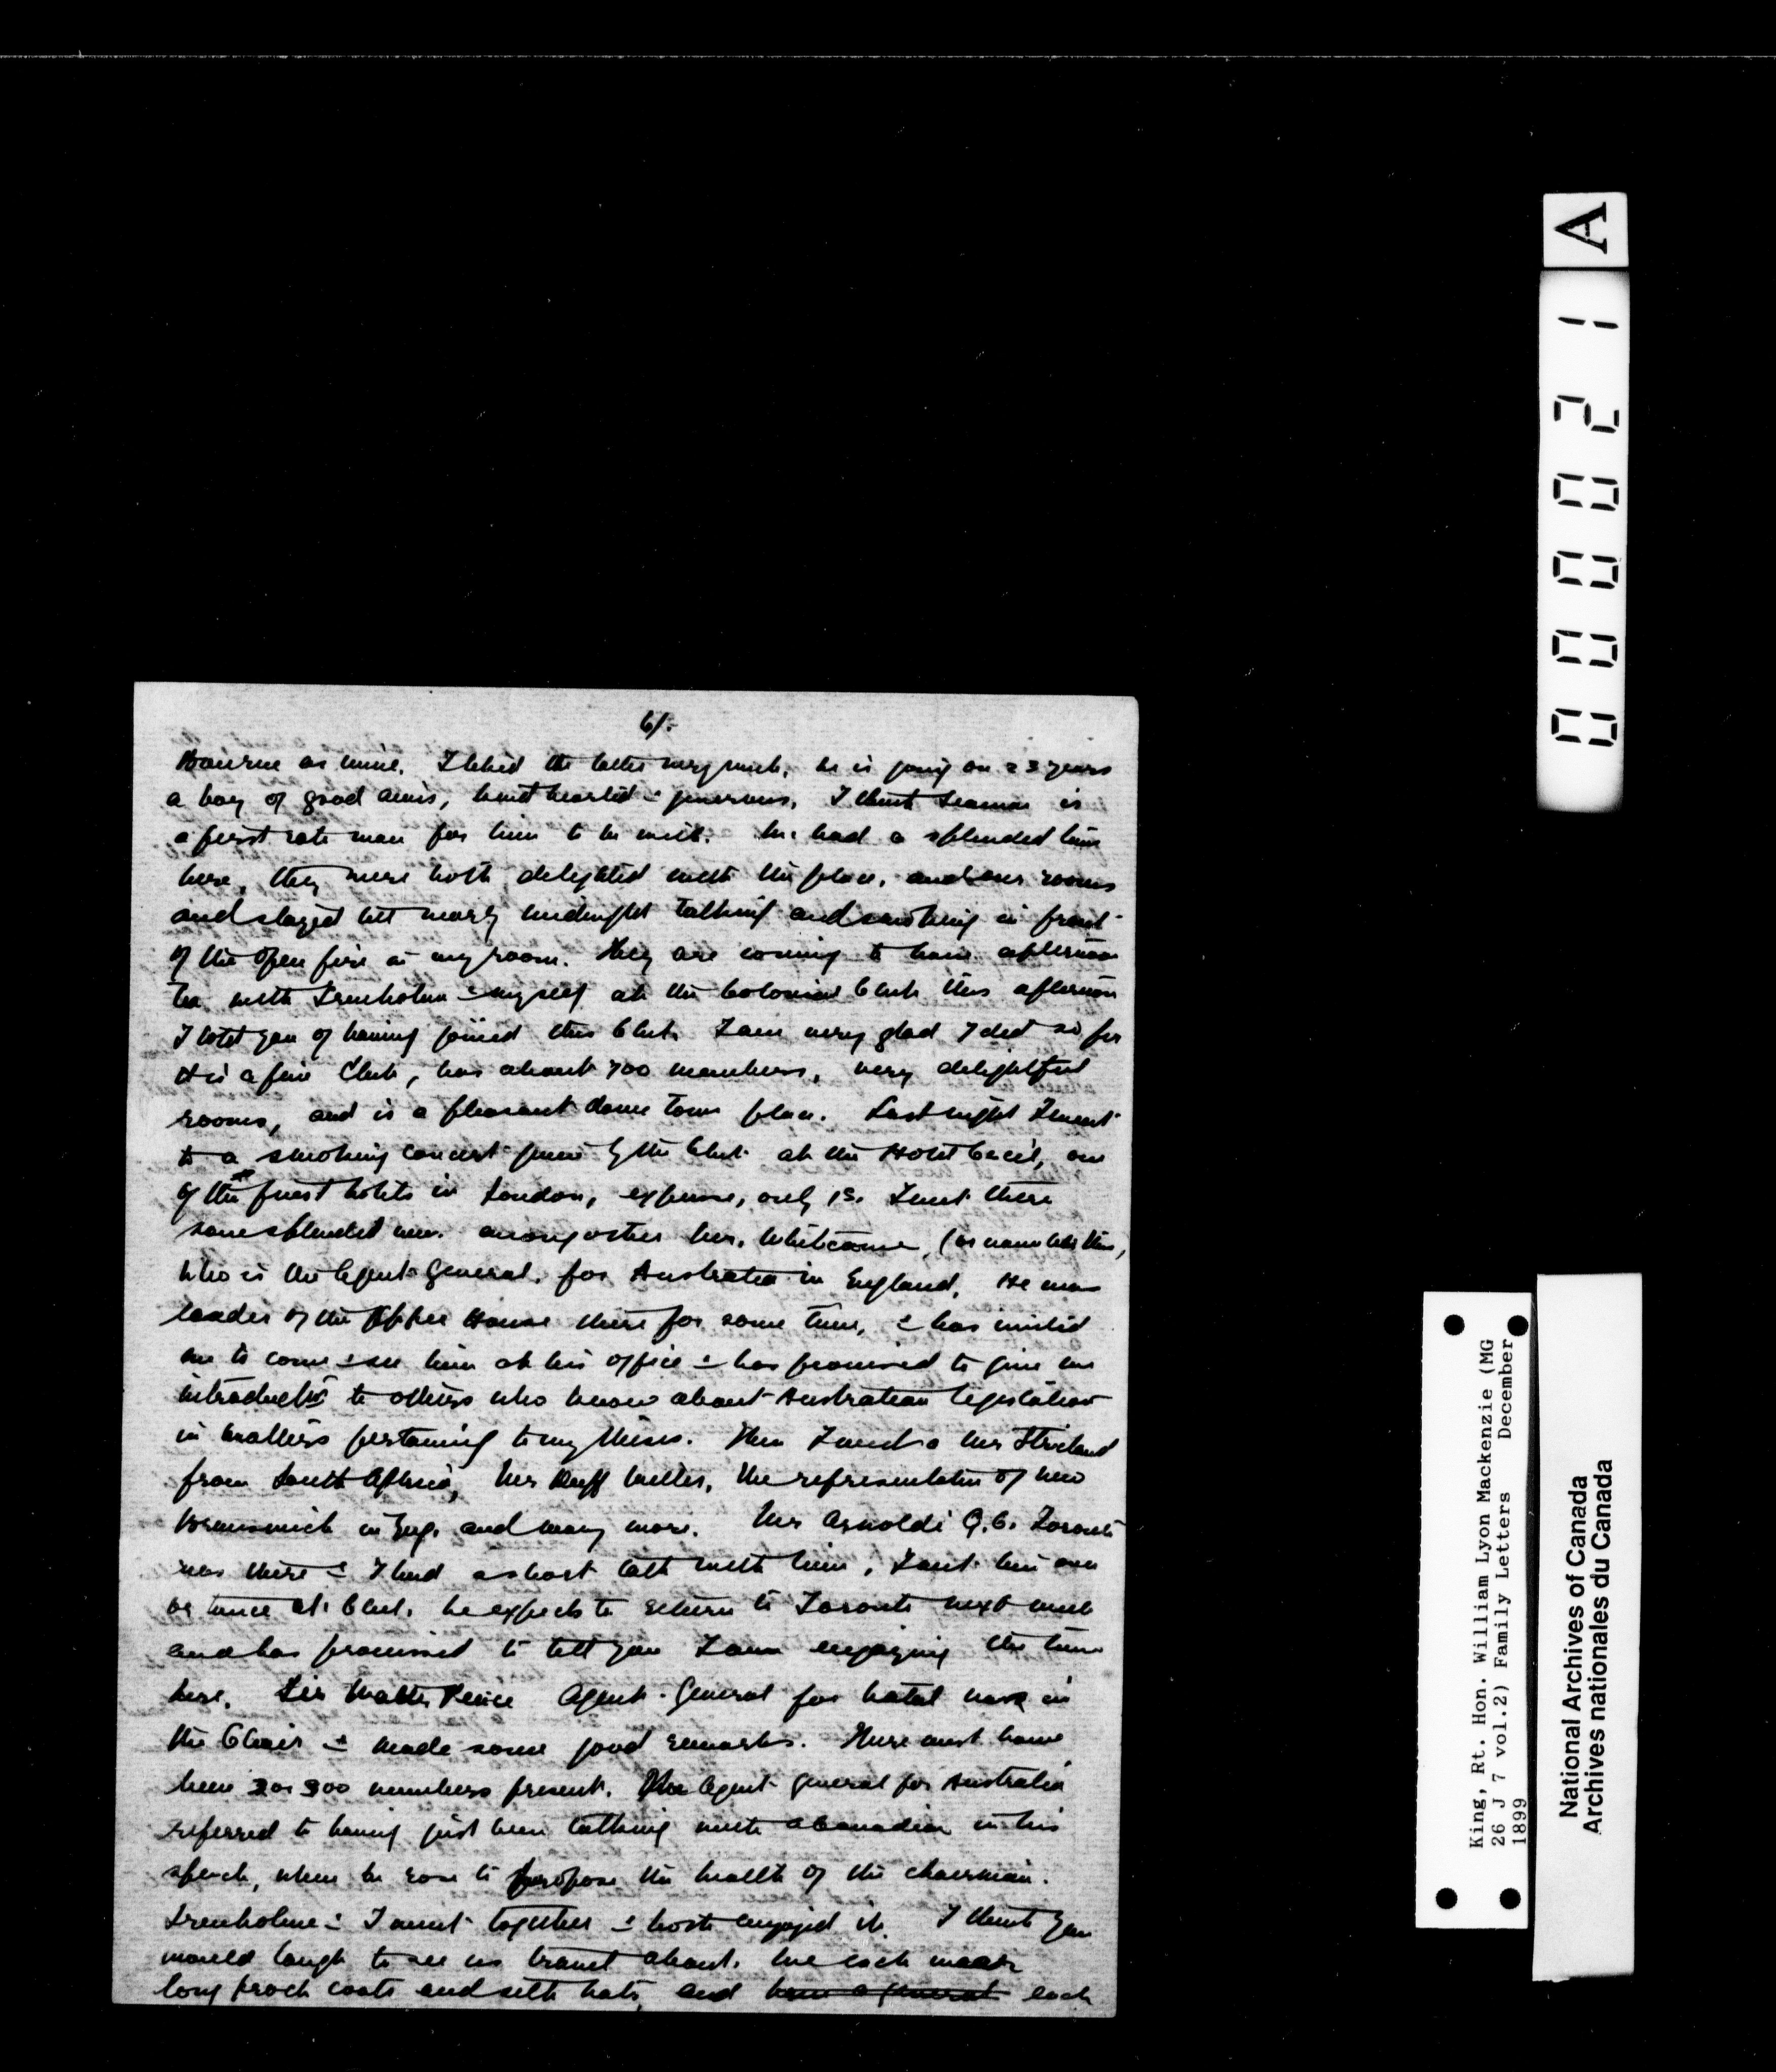 6/.
Bourne as mine. I liked the latter very much, he is going on 23 years
a boy of good aims, kind hearted & generous. I think Seaman is
a first rate man for him to be with. We had a splendid time
here, they were both delighted with the place, and our rooms
and stayed till nearly midnight talking and smoking in front
of the open fire in my room. They are coming to have afternoon
tea with Trenholme & myself at the Colonial Club this afternoon
I told you of having joined this Club. I am very glad I did so, for
it is a fine Club, has about 700 members, very delightful
rooms, and is a pleasant down town place. Last night I went
to a smoking concert given by the Club at the Hotel Cecil, one
of the finest hotels in London, expense, only 1s. I met there
some splendid men. among others Mr.
who is the Agent General. for Australia in England. He was
leader of the Upper House there for some time, & has invited
me to come & see him at his office & has promised to give me
introductns to others who know about Australian legislation
in matters pertaining to my thesis. Then I met a Mr
from South Africa, Mr Duff Miller, the representative of New
Brunswick in Eng. and many more. Mr Arnoldi Q.C. Toronto
was there & I had a short talk with him,
at Club. he expects to return to Toronto next week
and has promised to tell you I am enjoying the time
here. Sir Walter Peace Agent-General for Natal was in
the Chair & made some good remarks. There must have
been 300 members present. The Agent General for Australia
referred to having just been talking with a Canadian in his
speech, when he rose to propose the health of the chairman.
Trenholme & I went together & both enjoyed it. I think you
would laugh to see us travel about. We each wear
long frock coats and silk hats, and have a general each
A
0000021
King, Rt. Hon. William Lyon Mackenzie (MG
26 J 7 vol.2) Family Letters December
1899
National Archives of Canada
Archives nationales du Canada